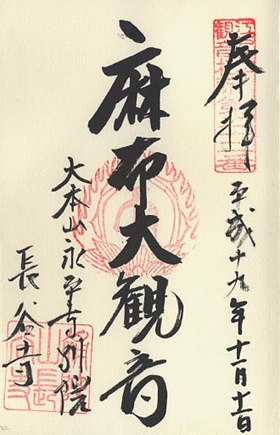 奉拝
平成十九年十一月十一日
麻布大観音
大本山永平寺別院
長谷寺